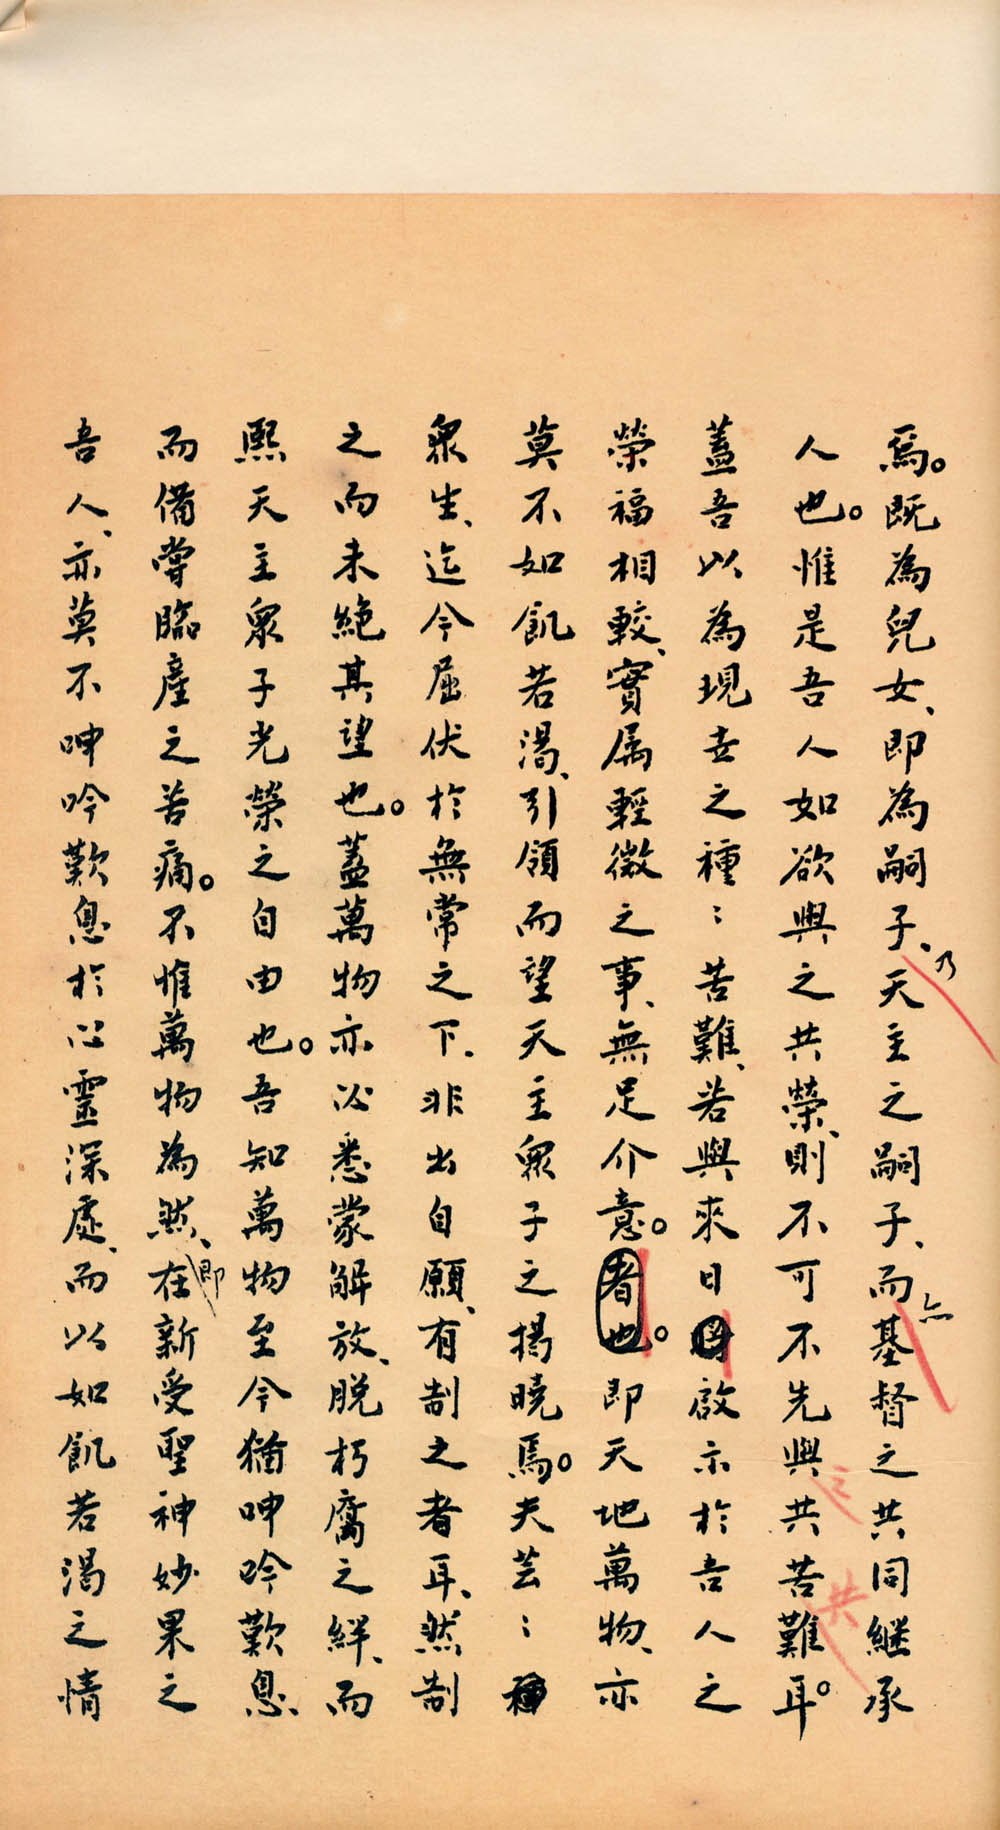 焉。既為兒女、即為嗣子、乃天主之嗣子、而亦基督之共同繼承
人也。惟是吾人如欲與之共榮、則不可不先與之共苦共難耳。
蓋吾以為現世之種〻苦難、若與來日啟示於吾人之
榮福相較、實屬輕微之事、無足介意。者也。即天地萬物、亦
莫不如飢若渴、引領而望天主眾子之揭曉焉。夫芸〻
眾生、迄今屈伏於無常之下、非出自願、有制之者耳、然制
之而未絕其望也。蓋萬物亦必悉蒙解放、脫朽腐之絆、而
熙天主眾子光榮之自由也。吾知萬物至今猶呻吟歎息、
而備嘗臨產之苦痛。不惟萬物為然、即在新受聖神妙果之
吾人、亦莫不呻吟歎息於心靈深處、而以如飢若渴之情